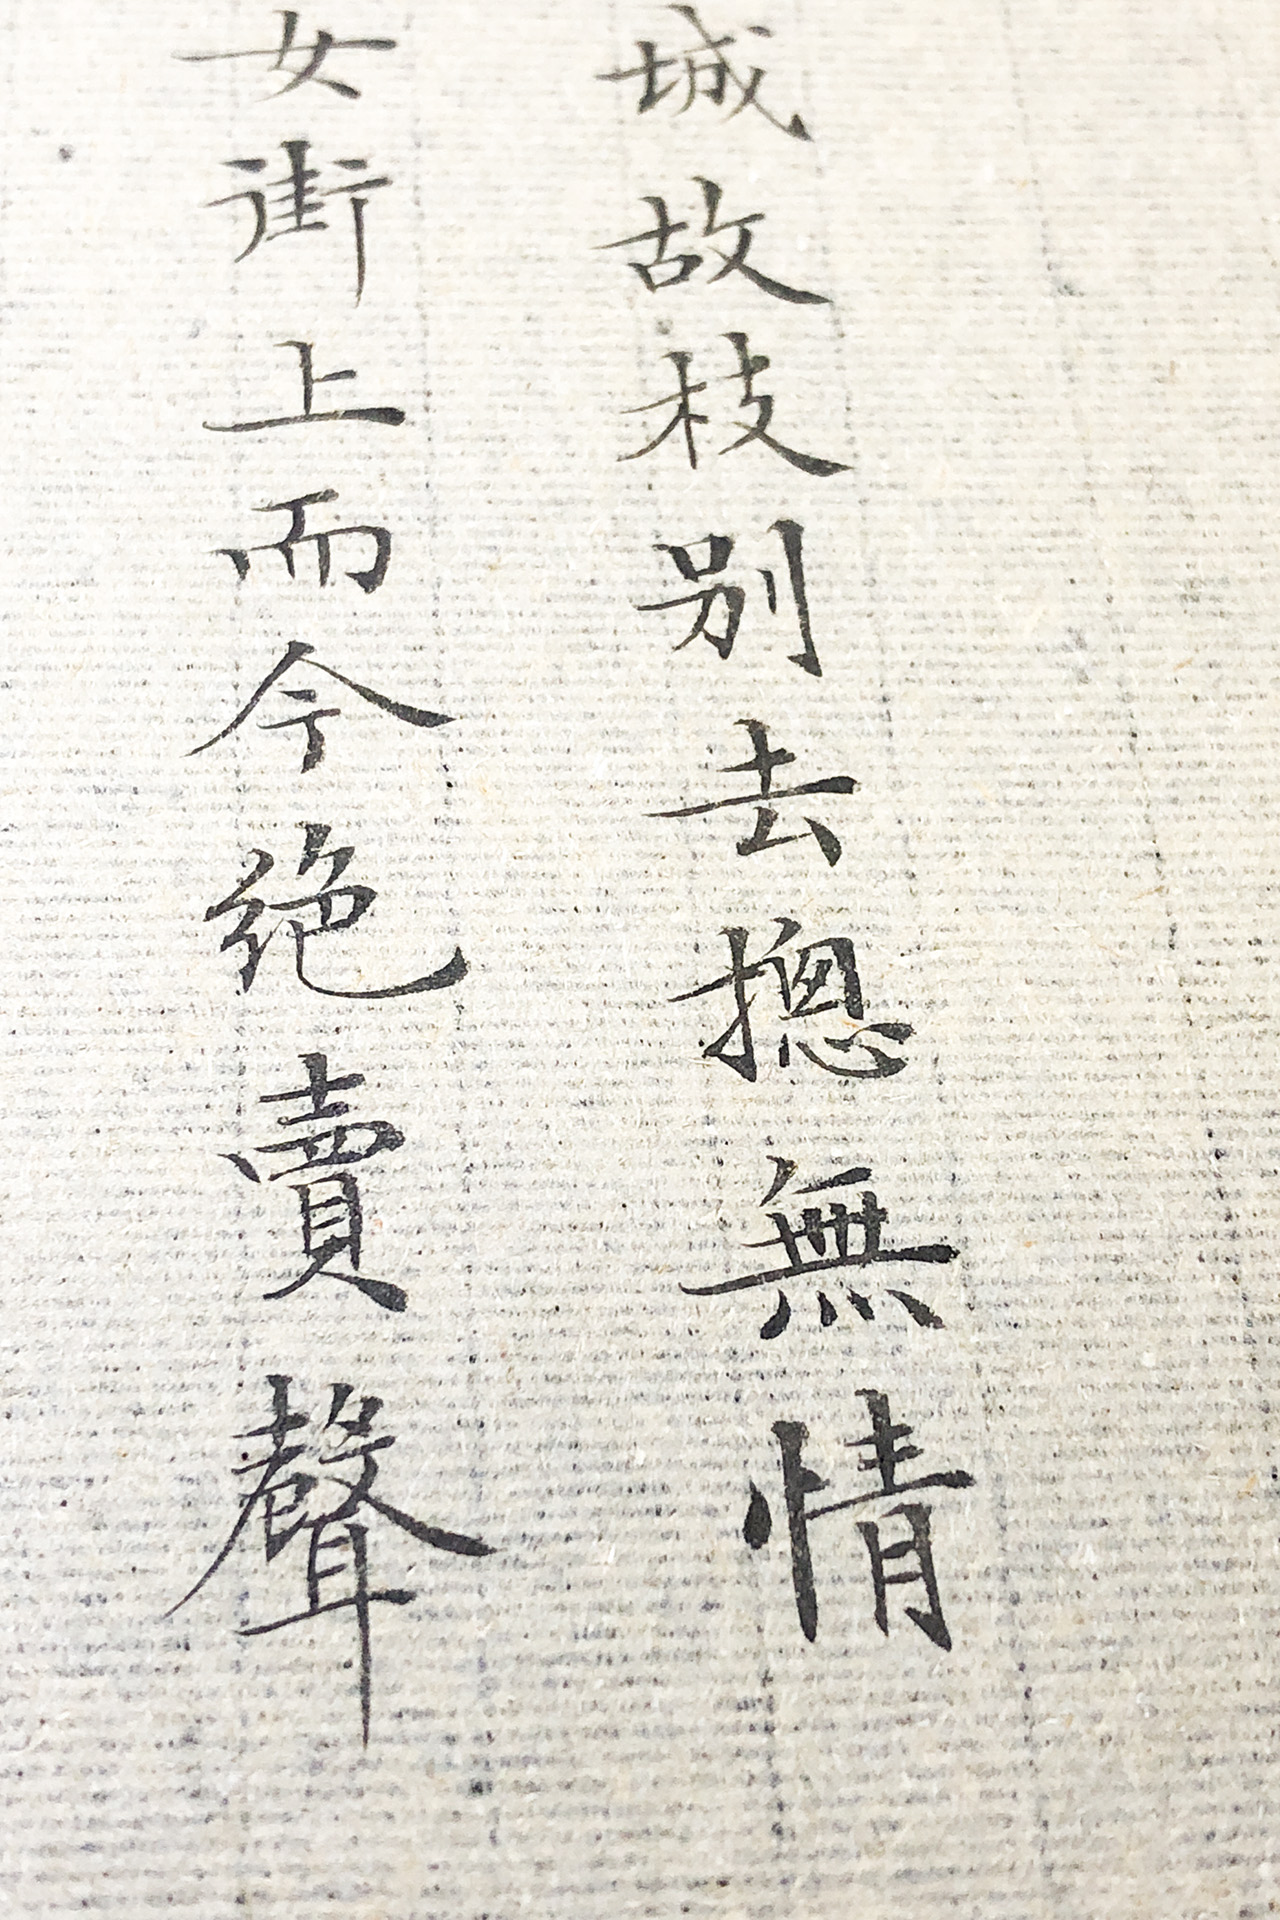 城故枝別去摠無情
女街上而今絶賣聲